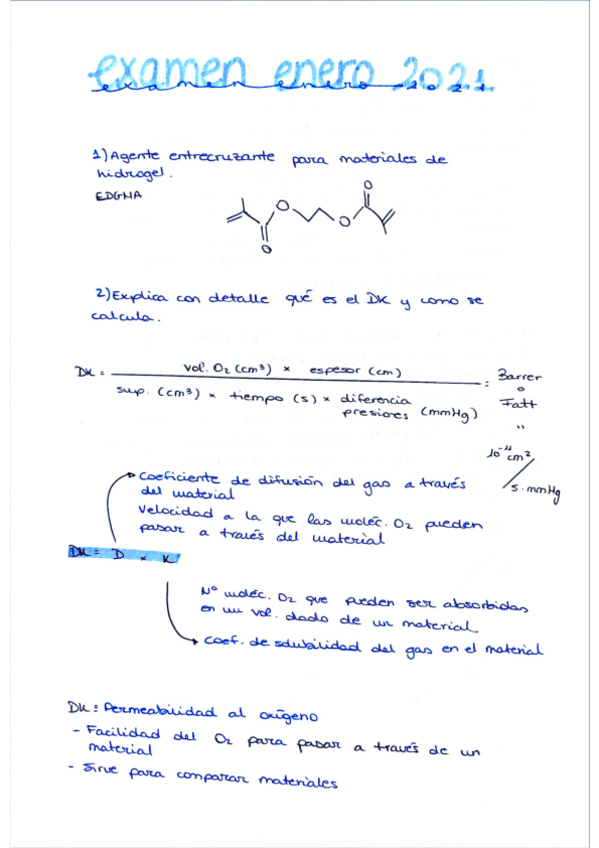 examen enero 2021.
1) Agente entrecruzante para materiales de
hidrogel.
EDGMA
O
O
O
O
2) Explica con detalle qué es el DK y como se
calcula.
DK = vol. O2 (cm³) × espesor (cm)
sup. (cm³) × tiempo (s) × diferencia
presiones (mmHg)
= Barrer
o
Fatt
"
10⁻¹¹ cm²
/ s·mmHg
Coeficiente de difusión del gas a través
del material
Velocidad a la que las moléc. O2 pueden
pasar a través del material
DK = D × K
Nº moléc. O2 que pueden ser absorbidas
en un vol. dado de un material
coef. de solubilidad del gas en el material
DK = Permeabilidad al oxígeno
- Facilidad del O2 para pasar a través de un
material
- Sirve para comparar materiales